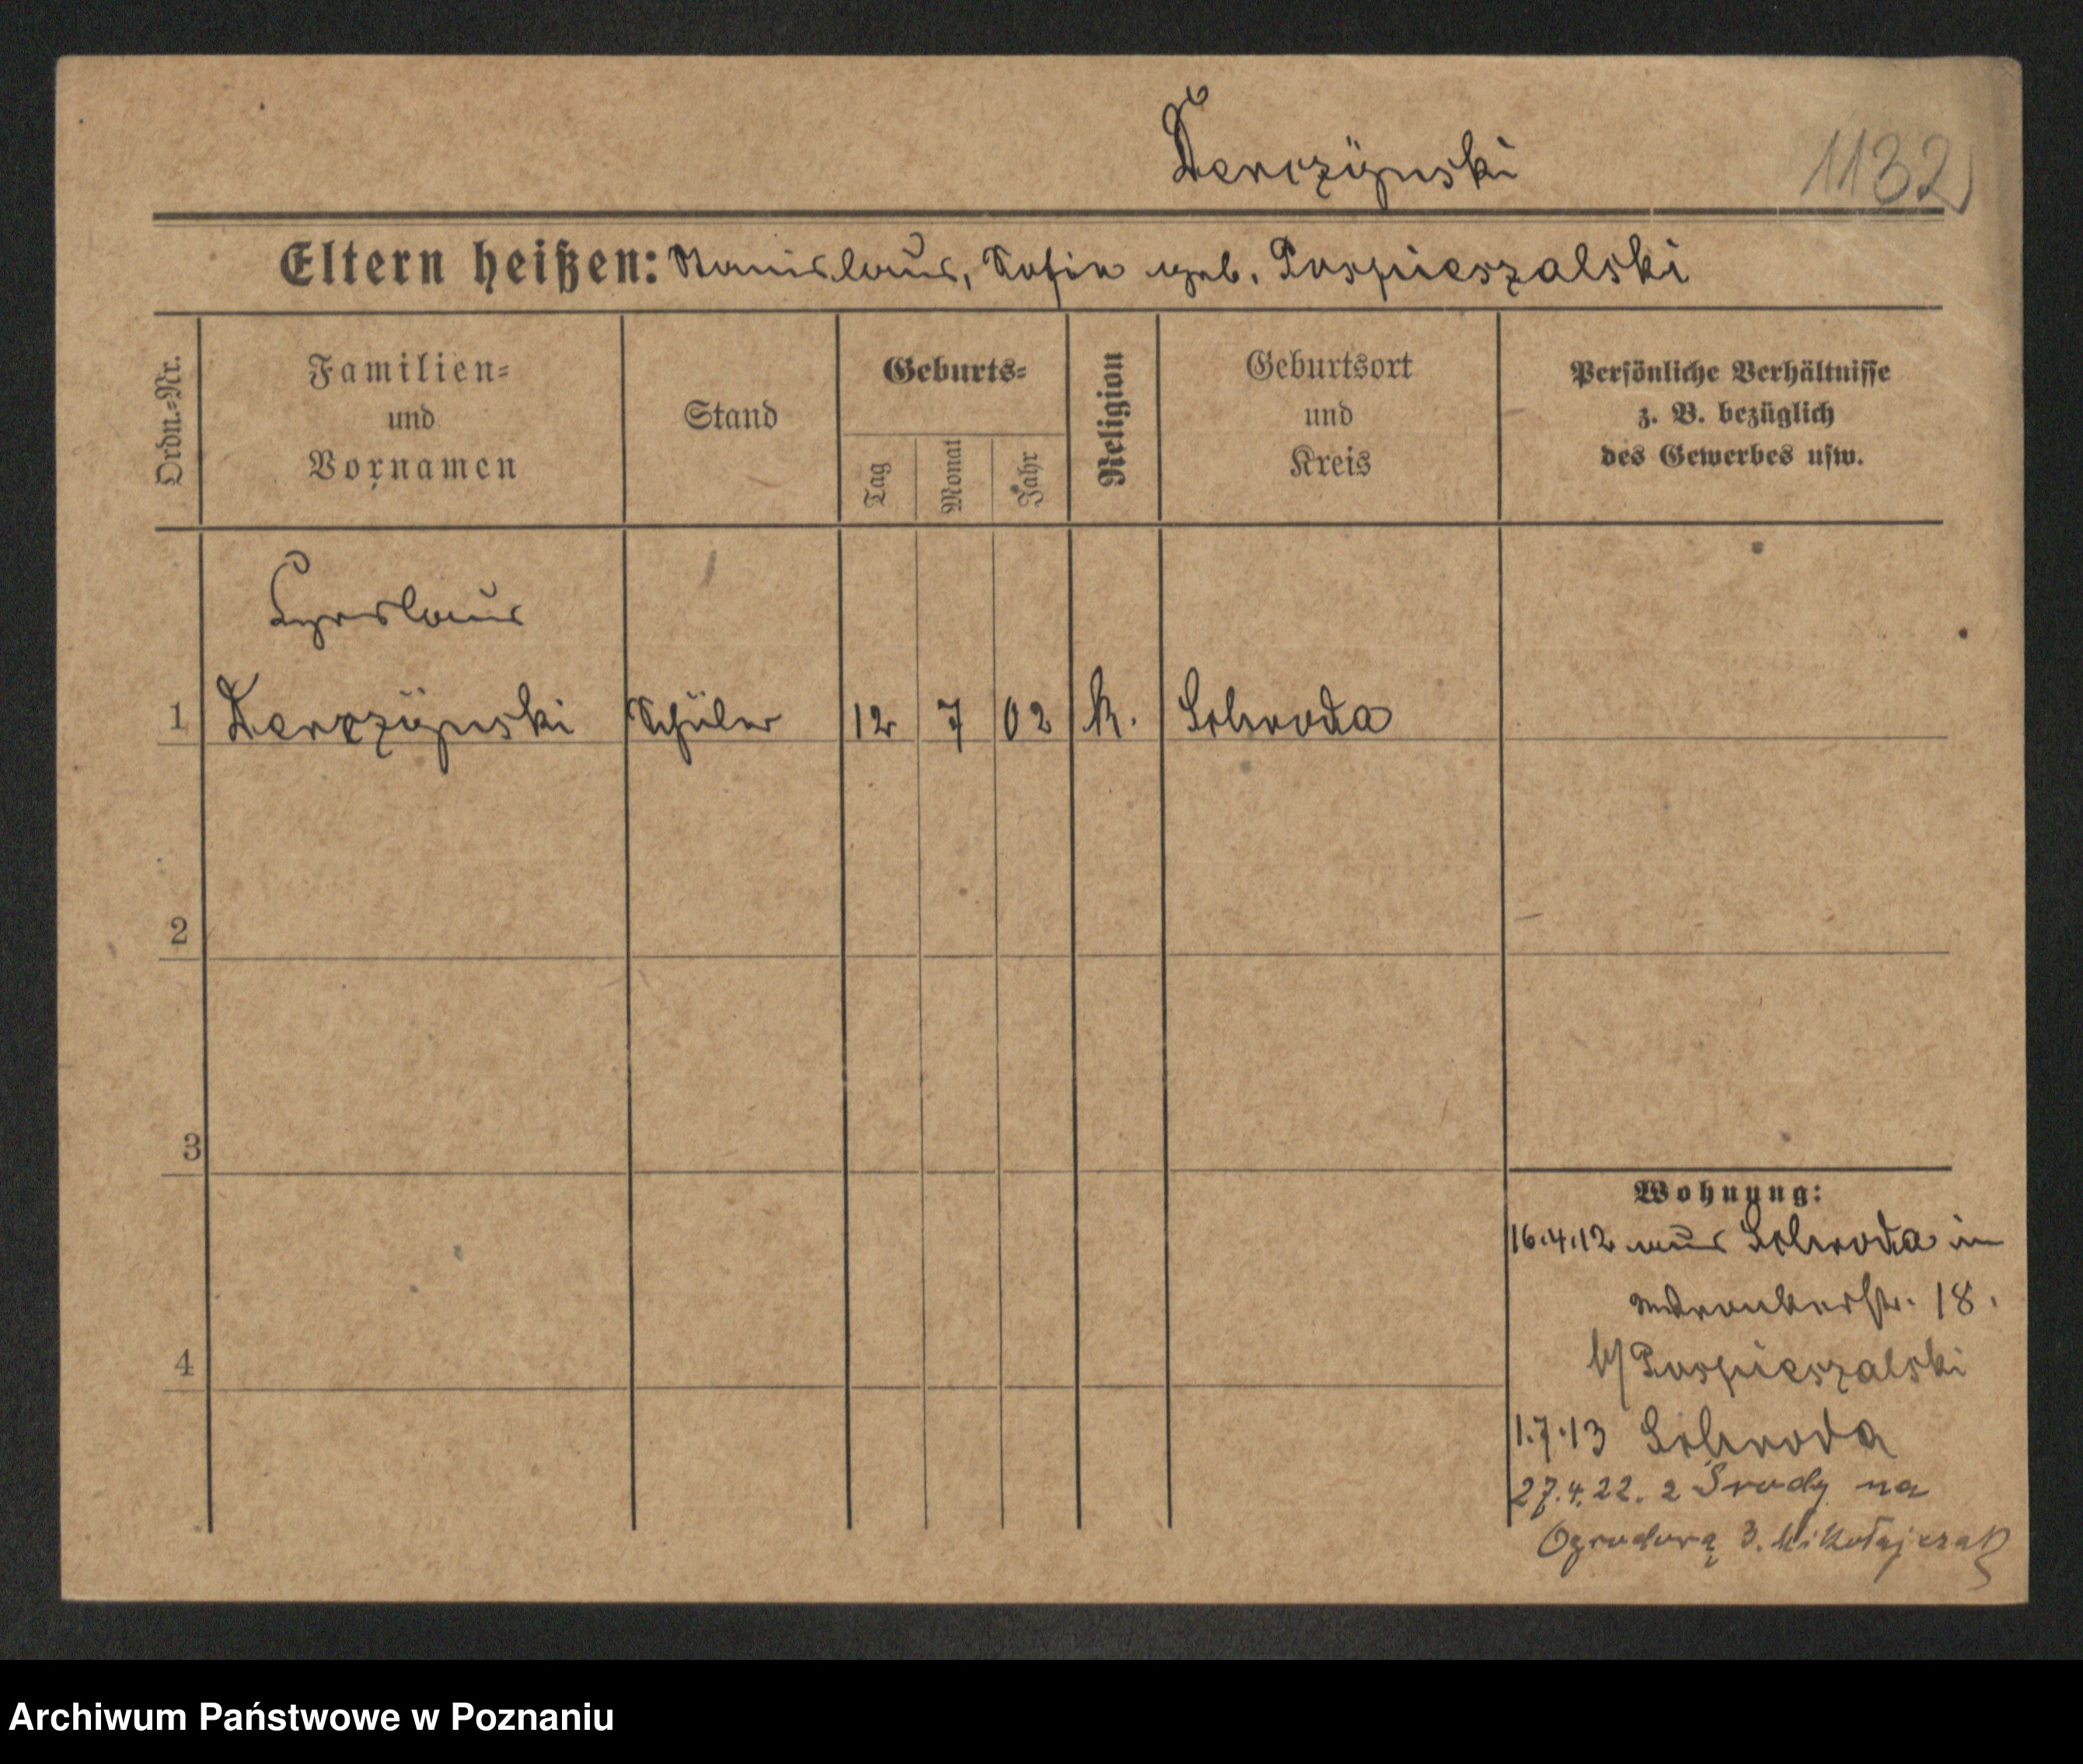 Derczyński
1132
Eltern heißen: Stanislaus, Sofia geb. Pospieszalski
Ordn.-Nr.
Familien-
und
Vornamen
Stand
Geburts-
Tag
Monat
Jahr
Religion
Geburtsort
und
Kreis
Persönliche Verhältnisse
z. B. bezüglich
des Gewerbes usw.
1
Derczyński
Schüler
12
7
02
k.
Schroda
2
3
4
Wohnung:
16.4.12 aus Schroda in
18.
b/ Pospieszalski
1.7.13 Schroda
27.4.22. z Środy na
Ogrodową 3. Mikołajczak
Archiwum Państwowe w Poznaniu